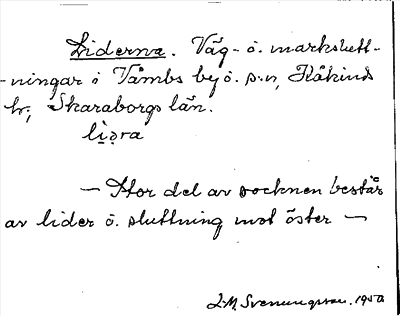 Liderna. Väg- o. markslutt-
-ningar i Våmbs by o. s:n, Kåkinds
hr, Skaraborgs län.
li̱ḍra
— Stor del av socknen består
av lider o. sluttning mot öster —
S.M. Svenungsson. 1950